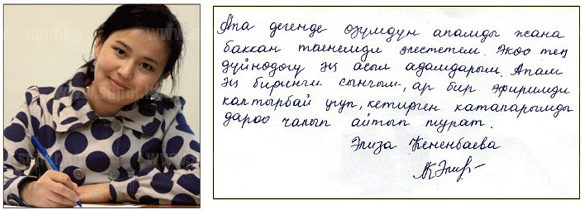 Апа дегенде өзүмдүн апамды жана
баккан таенемди элестетем. Экөө тең
дүйнөдөгү эң асыл адамдарым. Апам
эң биринчи сынчым, ар бир эфиримди
калтырбай угуп, кетирген каталарымды
дароо чалып айтып турат.
Элиза Кененбаева